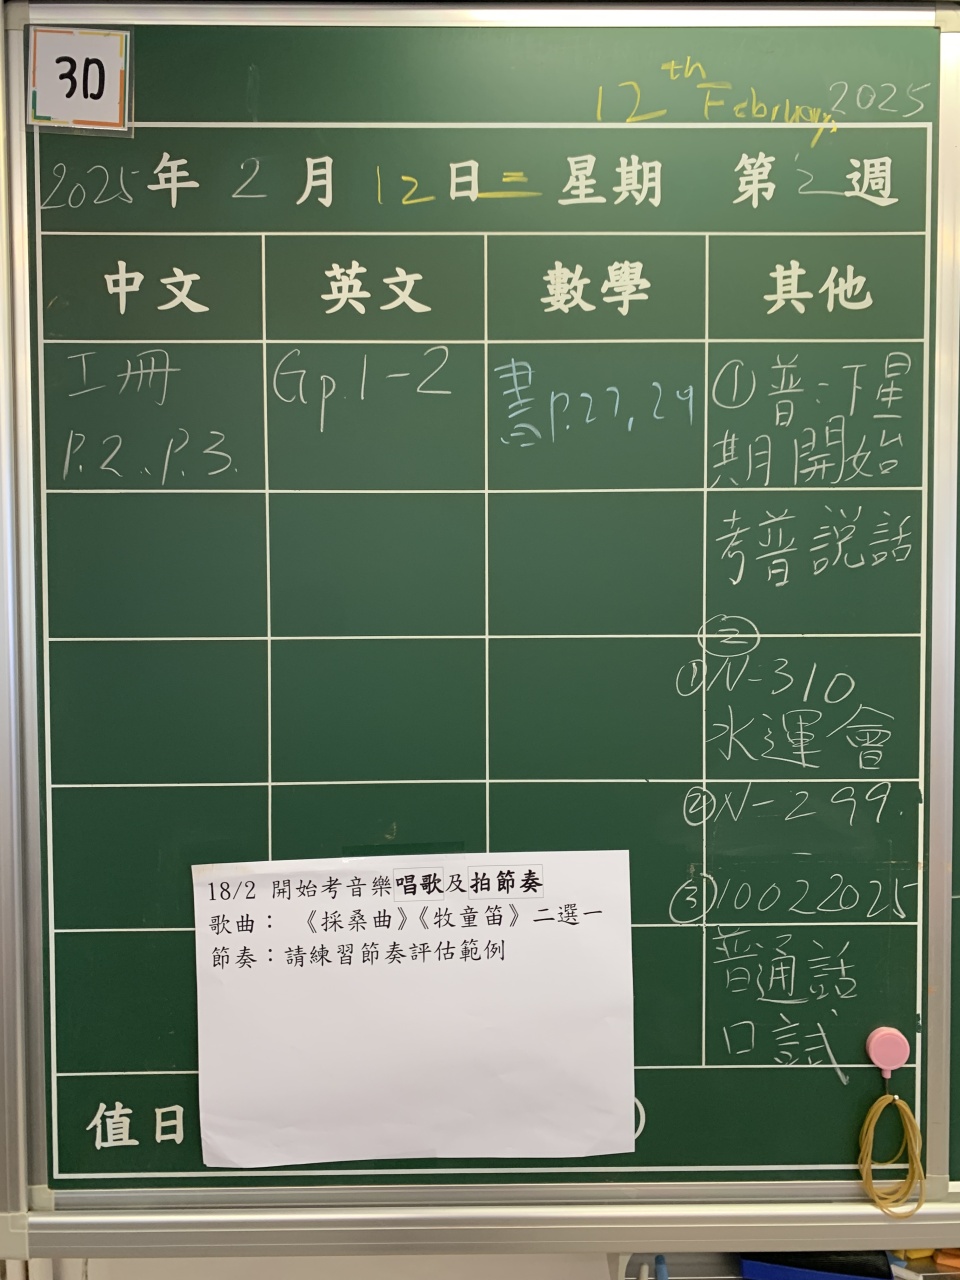 3D
12th February, 2025
2025年 2 月 12日二 星期 第 2 週
中文 英文 數學 其他
工冊
P.2、P.3.
Gp.1-2
書P.27, 29
①普:下星
期開始
考普說話
②
①N-310
水運會
②N-299.
③10022025
普通話
口試
18/2 開始考音樂唱歌及拍節奏
歌曲： 《採桑曲》《牧童笛》二選一
節奏：請練習節奏評估範例
值日